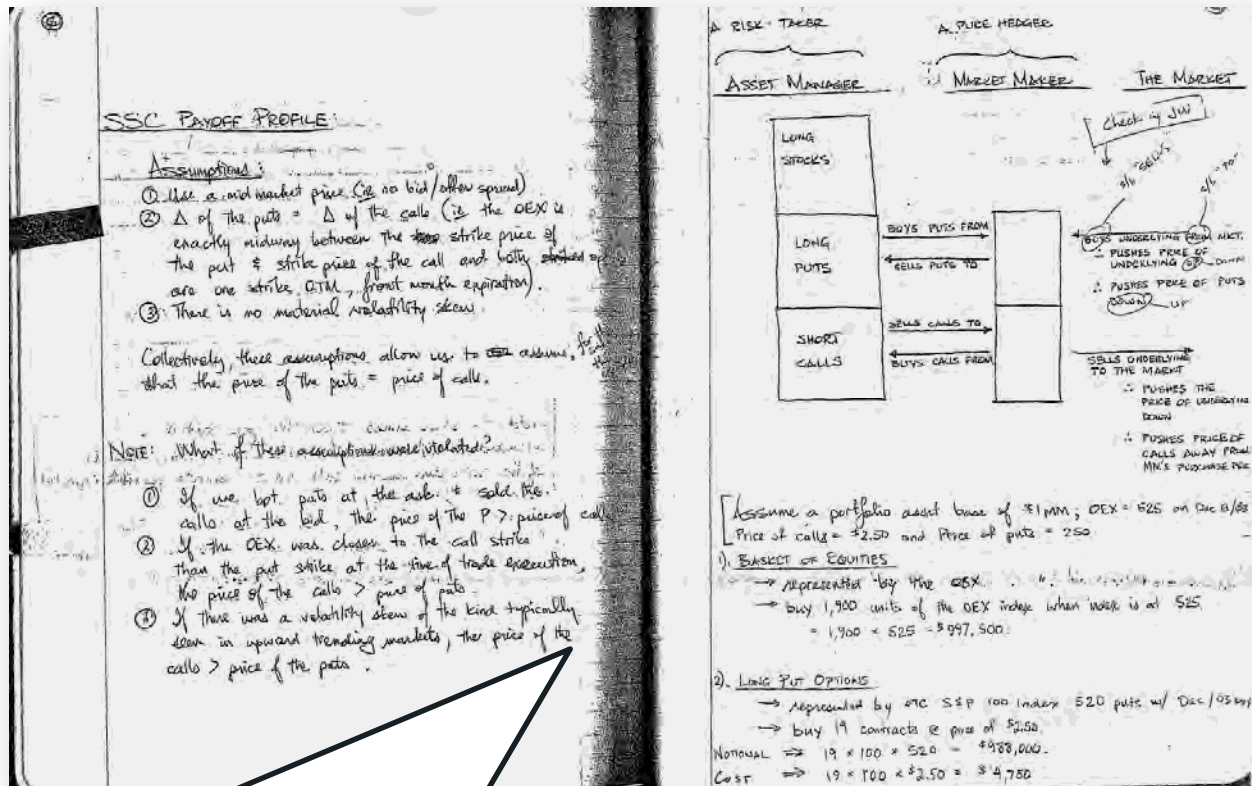 SSC PAYOFF PROFILE:
Assumptions:
① Use a mid market price (ie no bid/offer spread)
② Δ of the puts = Δ of the calls (ie the OEX is
exactly midway between the strike price of
the put & strike price of the call and both
are one strike OTM, front month expiration).
③ There is no material volatility skew.
Collectively, these assumptions allow us to assume,
that the price of the puts = price of calls.
NOTE: What if these assumptions were violated?
① If we bot puts at the ask & sold the
calls at the bid, the price of the P > price of call
② If the OEX was closer to the call strike
than the put strike at the time of trade execution,
the price of the calls > price of puts.
③ If there was a volatility skew of the kind typically
seen in upward trending markets, the price of the
calls > price of the puts.
A RISK-TAKER
A PURE HEDGER
ASSET MANAGER
MARKET MAKER
THE MARKET
Check w/ JW
s/b "SELLS"
s/b "TO"
LONG
STOCKS
LONG
PUTS
SHORT
CALLS
BUYS PUTS FROM
SELLS PUTS TO
SELLS CALLS TO
BUYS CALLS FROM
BUYS UNDERLYING FROM MKT.
∴ PUSHES PRICE OF
UNDERLYING UP DOWN
∴ PUSHES PRICE OF PUTS
DOWN UP
SELLS UNDERLYING
TO THE MARKT
∴ PUSHES THE
PRICE OF UNDERLYING
DOWN
∴ PUSHES PRICE OF
CALLS AWAY FROM
MM'S PURCHASE PRE
Assume a portfolio asset base of $1MM; OEX = 525 on Dec
Price of calls = $2.50 and Price of puts = 250
1). BASKET OF EQUITIES
→ represented by the OEX.
→ buy 1,900 units of the OEX index when index is at 525.
= 1,900 × 525 = $997,500.
2). LONG PUT OPTIONS
→ represented by OTC S&P 100 index 520 puts w/ Dec/
→ buy 19 contracts @ price of $2.50.
NOTIONAL ⇒ 19 × 100 × 520 = $988,000.
COST ⇒ 19 × 100 × $2.50 = $4,750